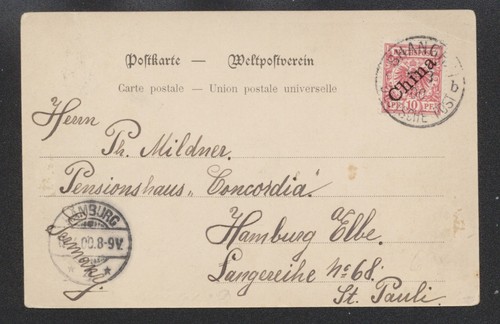 Postkarte — Weltpostverein
Carte postale — Union postale universelle
China
10 PF 10
b
Herrn
Ph. Mildner.
Pensionshaus „Concordia.“
Hamburg Elbe.
Langereihe No 68.
St. Pauli.
HAMBURG
00.8-9V.